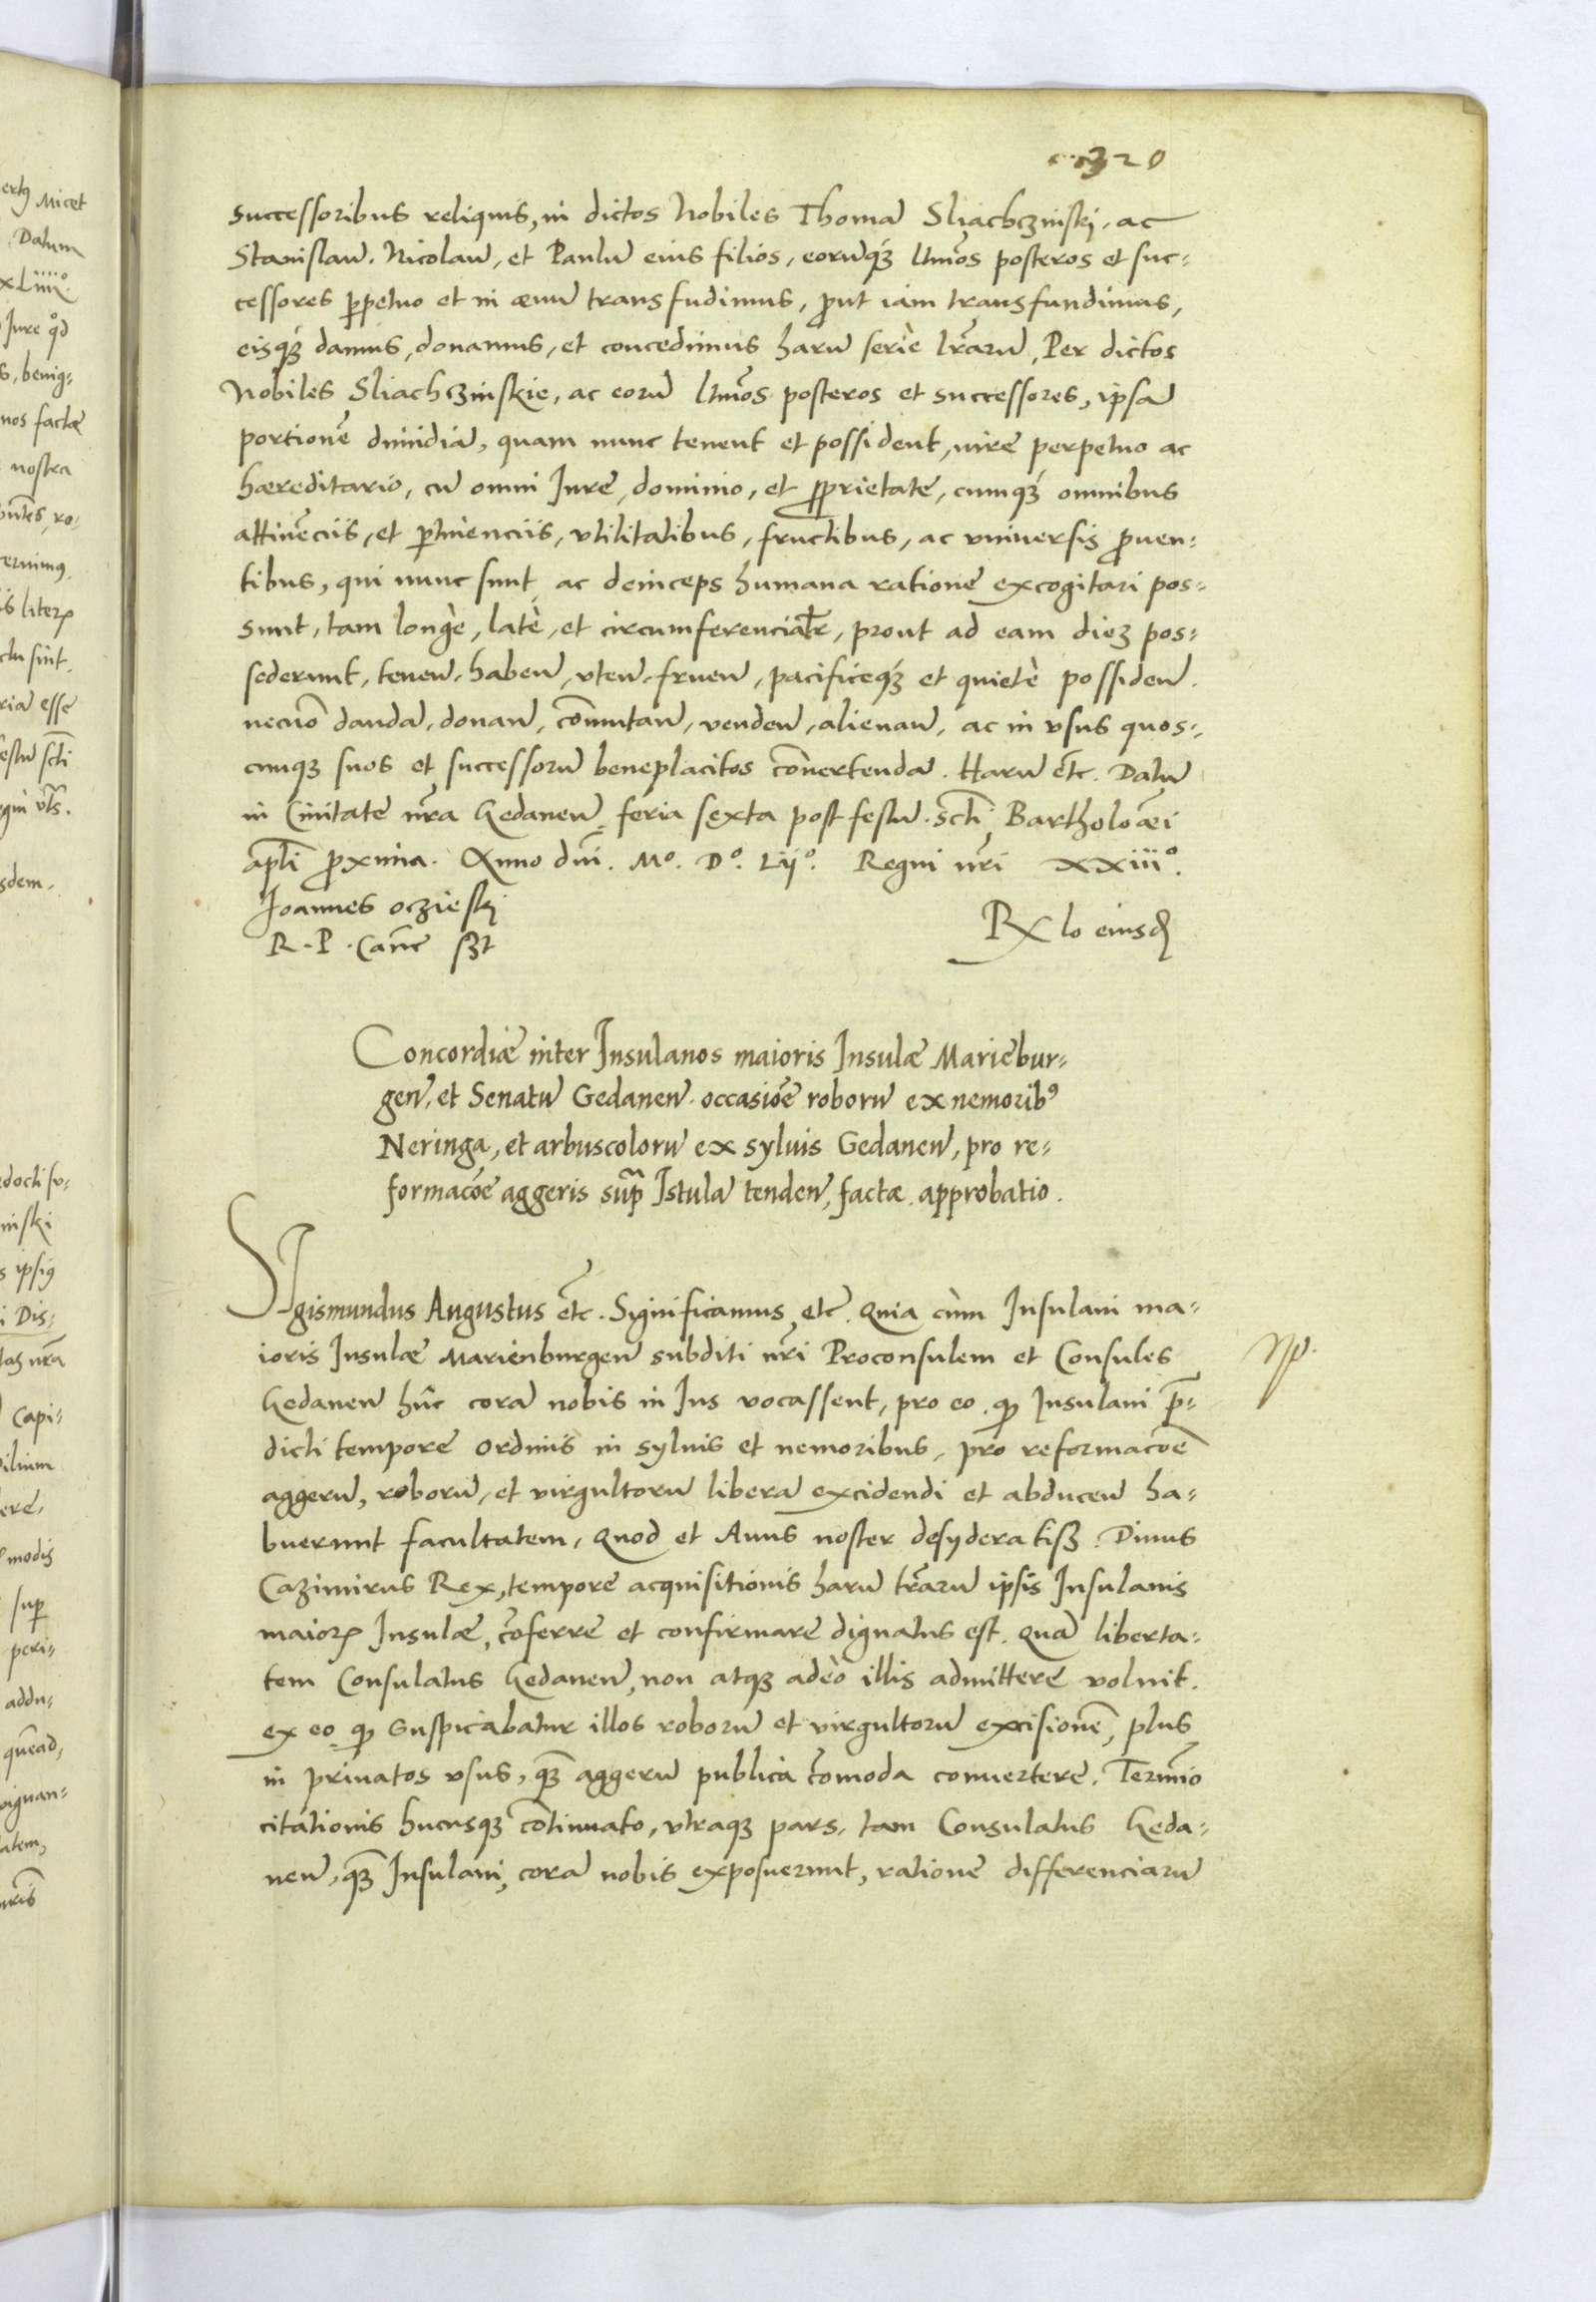 320
successoribus reliquis, in dictos Nobiles Thomā Sliachczinskj, ac
Stanislaū, Nicolaū, et Paulū eius filios, eorūq́ꝫ ltīmos posteros et suc-
cessores ꝑpetuo et in æuū transfudimus, ꝓut iam transfundimus,
eisq́ꝫ damus, donamus, et concedimus harū serie lr̃arū, Per dictos
Nobiles Sliachczinskie, ac eorū ltīmos posteros et successores, ipsā
portionē dimidiā, quam nunc tenent et possident, iure perpetuo ac
hæreditario, cū omni Jure, dominio, et ꝓprietate, cumq́ꝫ omnibus
attinēciis, et ꝑtinenciis, vtilitatibus, fructibus, ac vniuersis ꝓuen-
tibus, qui nunc sunt, ac deinceps humana ratione excogitari pos-
sunt, tam longè, latè, et circumferencialr̃, prout ad eam dieꝫ pos-
sederunt, tenen̄, haben̄, vten̄, fruen̄, pacificeq́ꝫ et quietè possiden̄.
necnō dandā, donan̄, cōmutan̄, venden̄, alienan̄, ac in vsus quos-
cunqꝫ suos et successorū beneplacitos cōuertendā. Harū etc̄. Datū
in Ciuitate nr̃a Gedanen̄, feria sexta post festū scti Bartholomæi
apl̃i ꝓxima. Anno dn̄i. Mº. Dº. Lijº. Regni nr̃i xxiiiº.
Joannes oczieskj
R. P. Canc̄ sꝫt
Rx lo eiusd̄
Concordiæ inter Insulanos maioris Insulæ Mariebur-
gen̄, et Senatū Gedanen̄ occasiōe roborū ex nemoribꝰ
Neringa, et arbuscolorū ex syluis Gedanen̄, pro re-
formacōe aggeris sup̄ Istulā tenden̄, factæ approbatio.
Sigismundus Augustus etc̄. Significamus etc̄. Quia cùm Insulani ma-
ioris Insulæ Marienburgen̄ subditi nr̃i Proconsulem et Consules
Gedanen̄ hûc corā nobis in Ius vocassent, pro eo ꝙ Insulani p̄-
dicti tempore ordinis in syluis et nemoribus, pro reformacōe
aggerū, roborū, et virgultorū liberā excidendi et abducen̄ ha-
buerunt facultatem, Quod et Auus noster desyderatisꝫ Diuus
Cazimirus Rex, tempore acquisitionis harū tr̃arū ipsis Insulanis
maioꝝ Insulæ, cōferre et confirmare dignatus est. Quā liberta-
tem Consulatus Gedanen̄, non atqꝫ adeò illis admittere voluit.
ex eo ꝙ suspicabatur illos roborū et virgultorū excisionē, plus
in priuatos vsus, qꝫ̄ aggerū publica cōmoda conuertere. Termīo
citationis hucusqꝫ cōtinuato, vtraqꝫ pars, tam Consulatus Geda-
nen̄, qꝫ̄ Insulani, corā nobis exposuerunt, ratione differenciarū